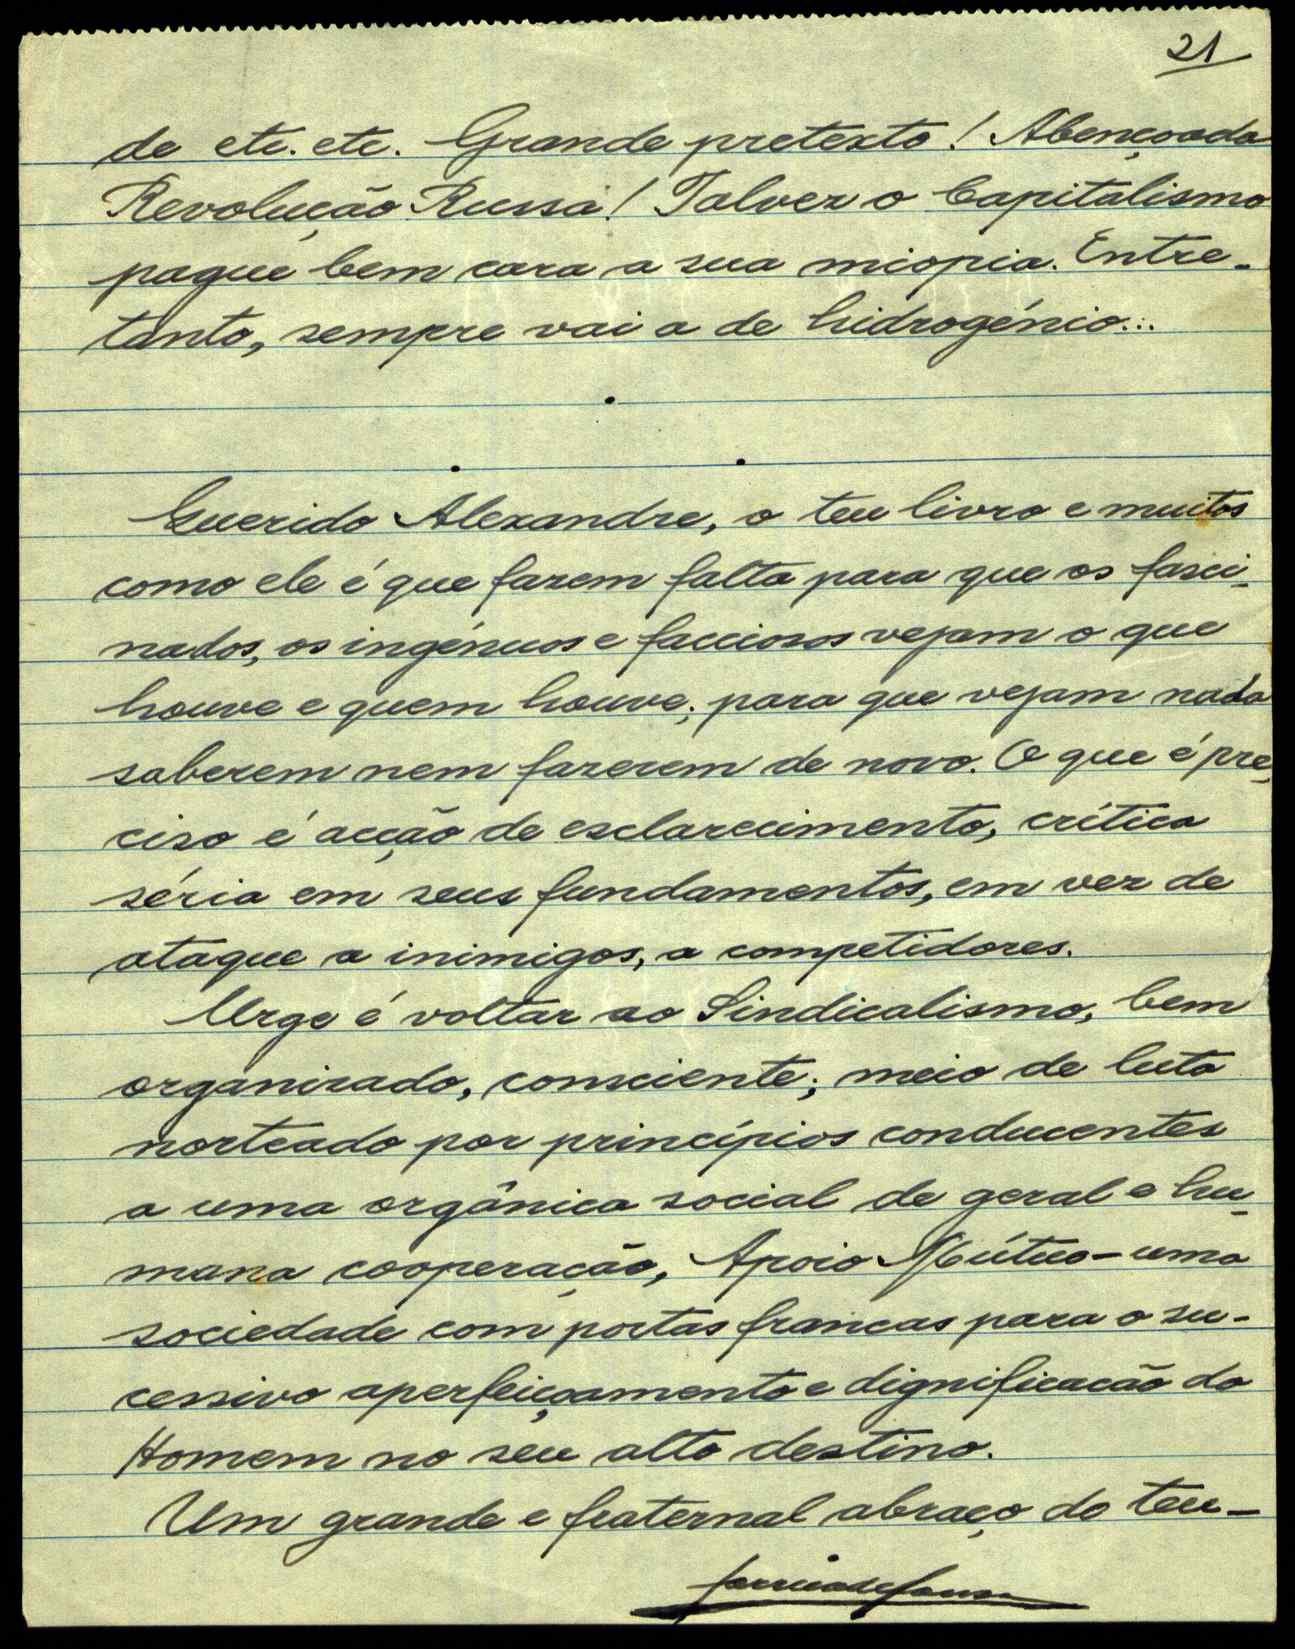 21
de etc. etc. Grande pretexto! Abençoada
Revolução Russa! Talvez o Capitalismo
pague bem cara a sua miopia. Entre-
tanto, sempre vai a de hidrogénio...
Querido Alexandre, o teu livro e muitos
como ele é que fazem falta para que os fasci-
nados, os ingénuos e facciosos vejam o que
houve e quem houve; para que vejam nada
saberem nem fazerem de novo. O que é pre-
ciso é acção de esclarecimento, crítica
séria em seus fundamentos, em vez de
ataque a inimigos, a competidores.
Urge é voltar ao Sindicalismo, bem
organizado, consciente; meio de luta
norteado por princípios conducentes
a uma orgânica social de geral e hu-
mana cooperação, Apoio Mútuo - uma
sociedade com portas francas para o su-
cessivo aperfeiçoamento e dignificação do
Homem no seu alto destino.
Um grande e fraternal abraço do teu -